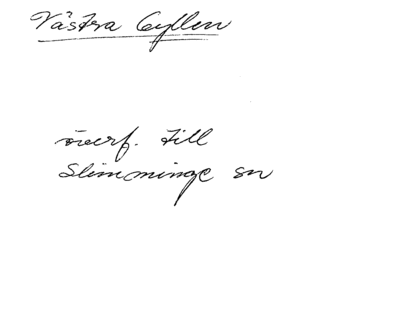 Västra Gyllen
överf. till
Slimminge sn